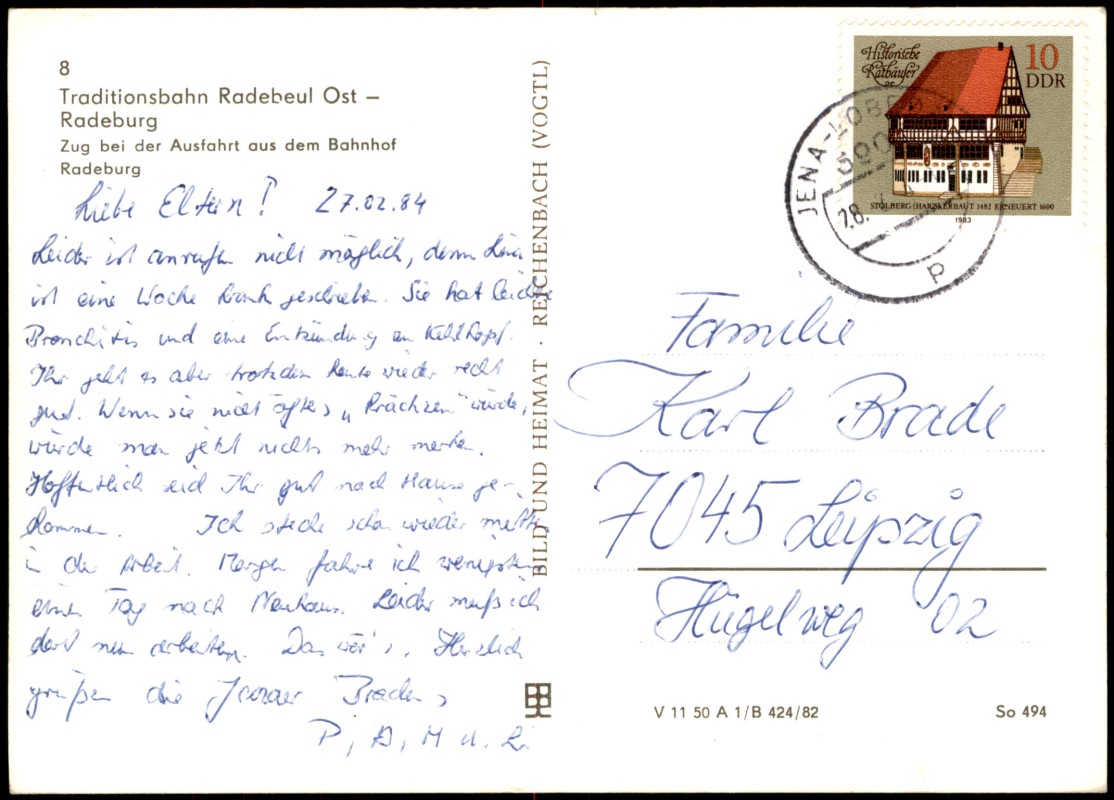 8
Traditionsbahn Radebeul Ost –
Radeburg
Zug bei der Ausfahrt aus dem Bahnhof
Radeburg
Liebe Eltern! 27.02.84
Leider ist anrufen nicht möglich, denn
ist eine Woche krank geschrieben. Sie hat leichte
Bronchitis und eine Entzündung am Kehlkopf.
Ihr geht es aber trotzdem heute wieder recht
gut. Wenn sie nicht öfters „Krächzen" würde,
würde man jetzt nichts mehr merken.
Hoffentlich seid Ihr gut nach Hause ge-
kommen. Ich stecke schon wieder mitten
in der Arbeit. Morgen fahre ich wenigstens
einen Tag nach Neuhaus. Leider muß ich
dort nur arbeiten. Das wär's. Herzlich
grüßen die Jenaer Brades
P, A, M u. Li.
BILD UND HEIMAT · REICHENBACH (VOGTL)
Historische
Rathäuser
10
DDR
STOLBERG (HARZ) ERBAUT 1482 ERNEUERT 1600
1983
JENA-LOBEDA
690
28.
p
Familie
Karl Brade
7045 Leipzig
Hügelweg 02
V 11 50 A 1/B 424/82
So 494